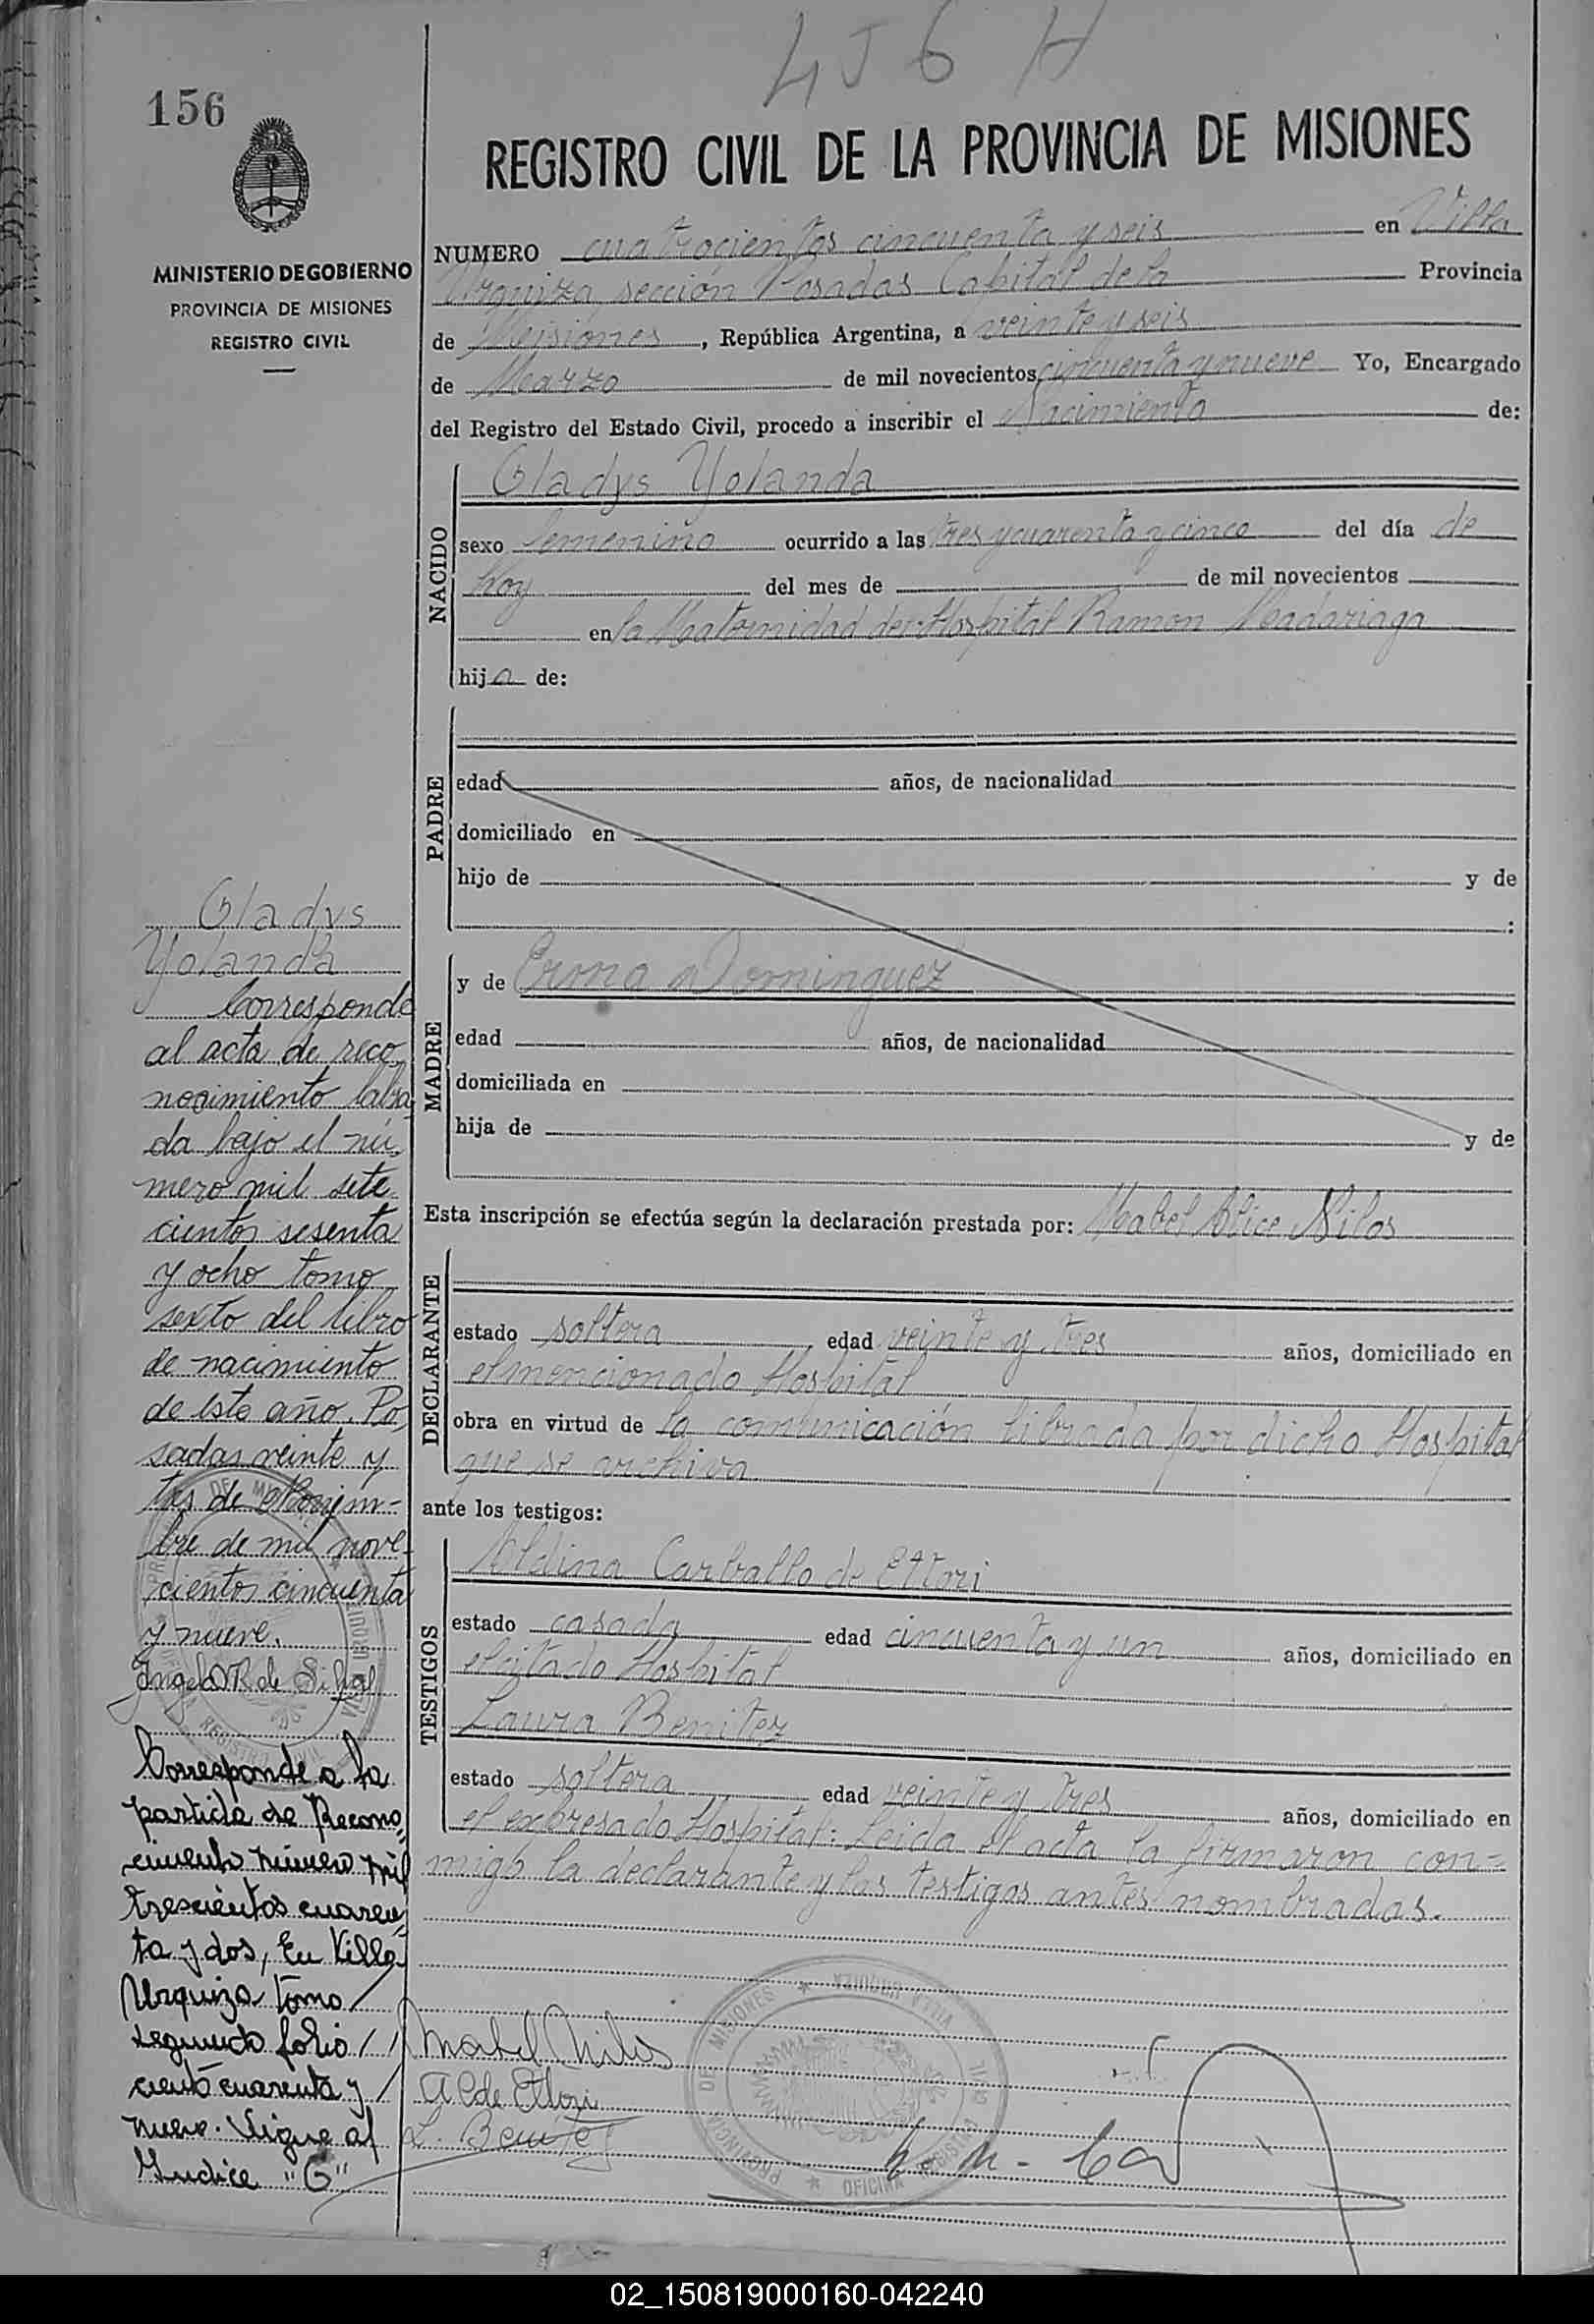 456 H
156
REGISTRO CIVIL DE LA PROVINCIA DE MISIONES
MINISTERIO DE GOBIERNO
PROVINCIA DE MISIONES
REGISTRO CIVIL
NUMERO cuatrocientos cincuenta y seis en Villa
Urquiza sección Posadas Capital de la Provincia
de Misiones, República Argentina, a veinte y seis
de Marzo de mil novecientos cincuenta y nueve Yo, Encargado
del Registro del Estado Civil, procedo a inscribir el Nacimiento de:
NACIDO
Gladys Yolanda
sexo femenino ocurrido a las tres y cuarenta y cinco del día de
hoy del mes de de mil novecientos
en la Maternidad del Hospital Ramon Madariaga
hija de:
PADRE
edad años, de nacionalidad
domiciliado en
hijo de y de
:
MADRE
y de Erma Dominguez
edad años, de nacionalidad
domiciliada en
hija de y de
Esta inscripción se efectúa según la declaración prestada por: Mabel Alice Nilos
DECLARANTE
estado soltera edad veinte y tres años, domiciliado en
el mencionado Hospital
obra en virtud de la comunicación librada por dicho Hospital
que se archiva
ante los testigos:
TESTIGOS
Aldina Carballo de Ettori
estado casada edad cincuenta y un años, domiciliado en
el citado Hospital
Laura Benitez
estado soltera edad veinte y tres años, domiciliado en
el expresado Hospital: Leida el acta la firmaron con-
migo la declarante y las testigos antes nombradas.
Mabel Nilos
A C de Ettori
L. Benitez
Gladys
Yolanda
Corresponde
al acta de reco
nocimiento labra
da bajo el nú
mero mil sete
cientos sesenta
y ocho tomo
sexto del libro
de nacimiento
de este año. Po
sadas veinte y
tres de Noviem-
bre de mil nove
cientos cincuenta
y nueve.
Corresponde a la
partida de Recono
cimiento número mil
trescientos cuaren
ta y dos, En Villa
Urquiza tomo
segundo folio
ciento cuarenta y
nueve. Sigue al
Indice "G"
PROVINCIA DE MISIONES
VILLA URQUIZA
OFICINA REGISTRO CIVIL
02_150819000160-042240